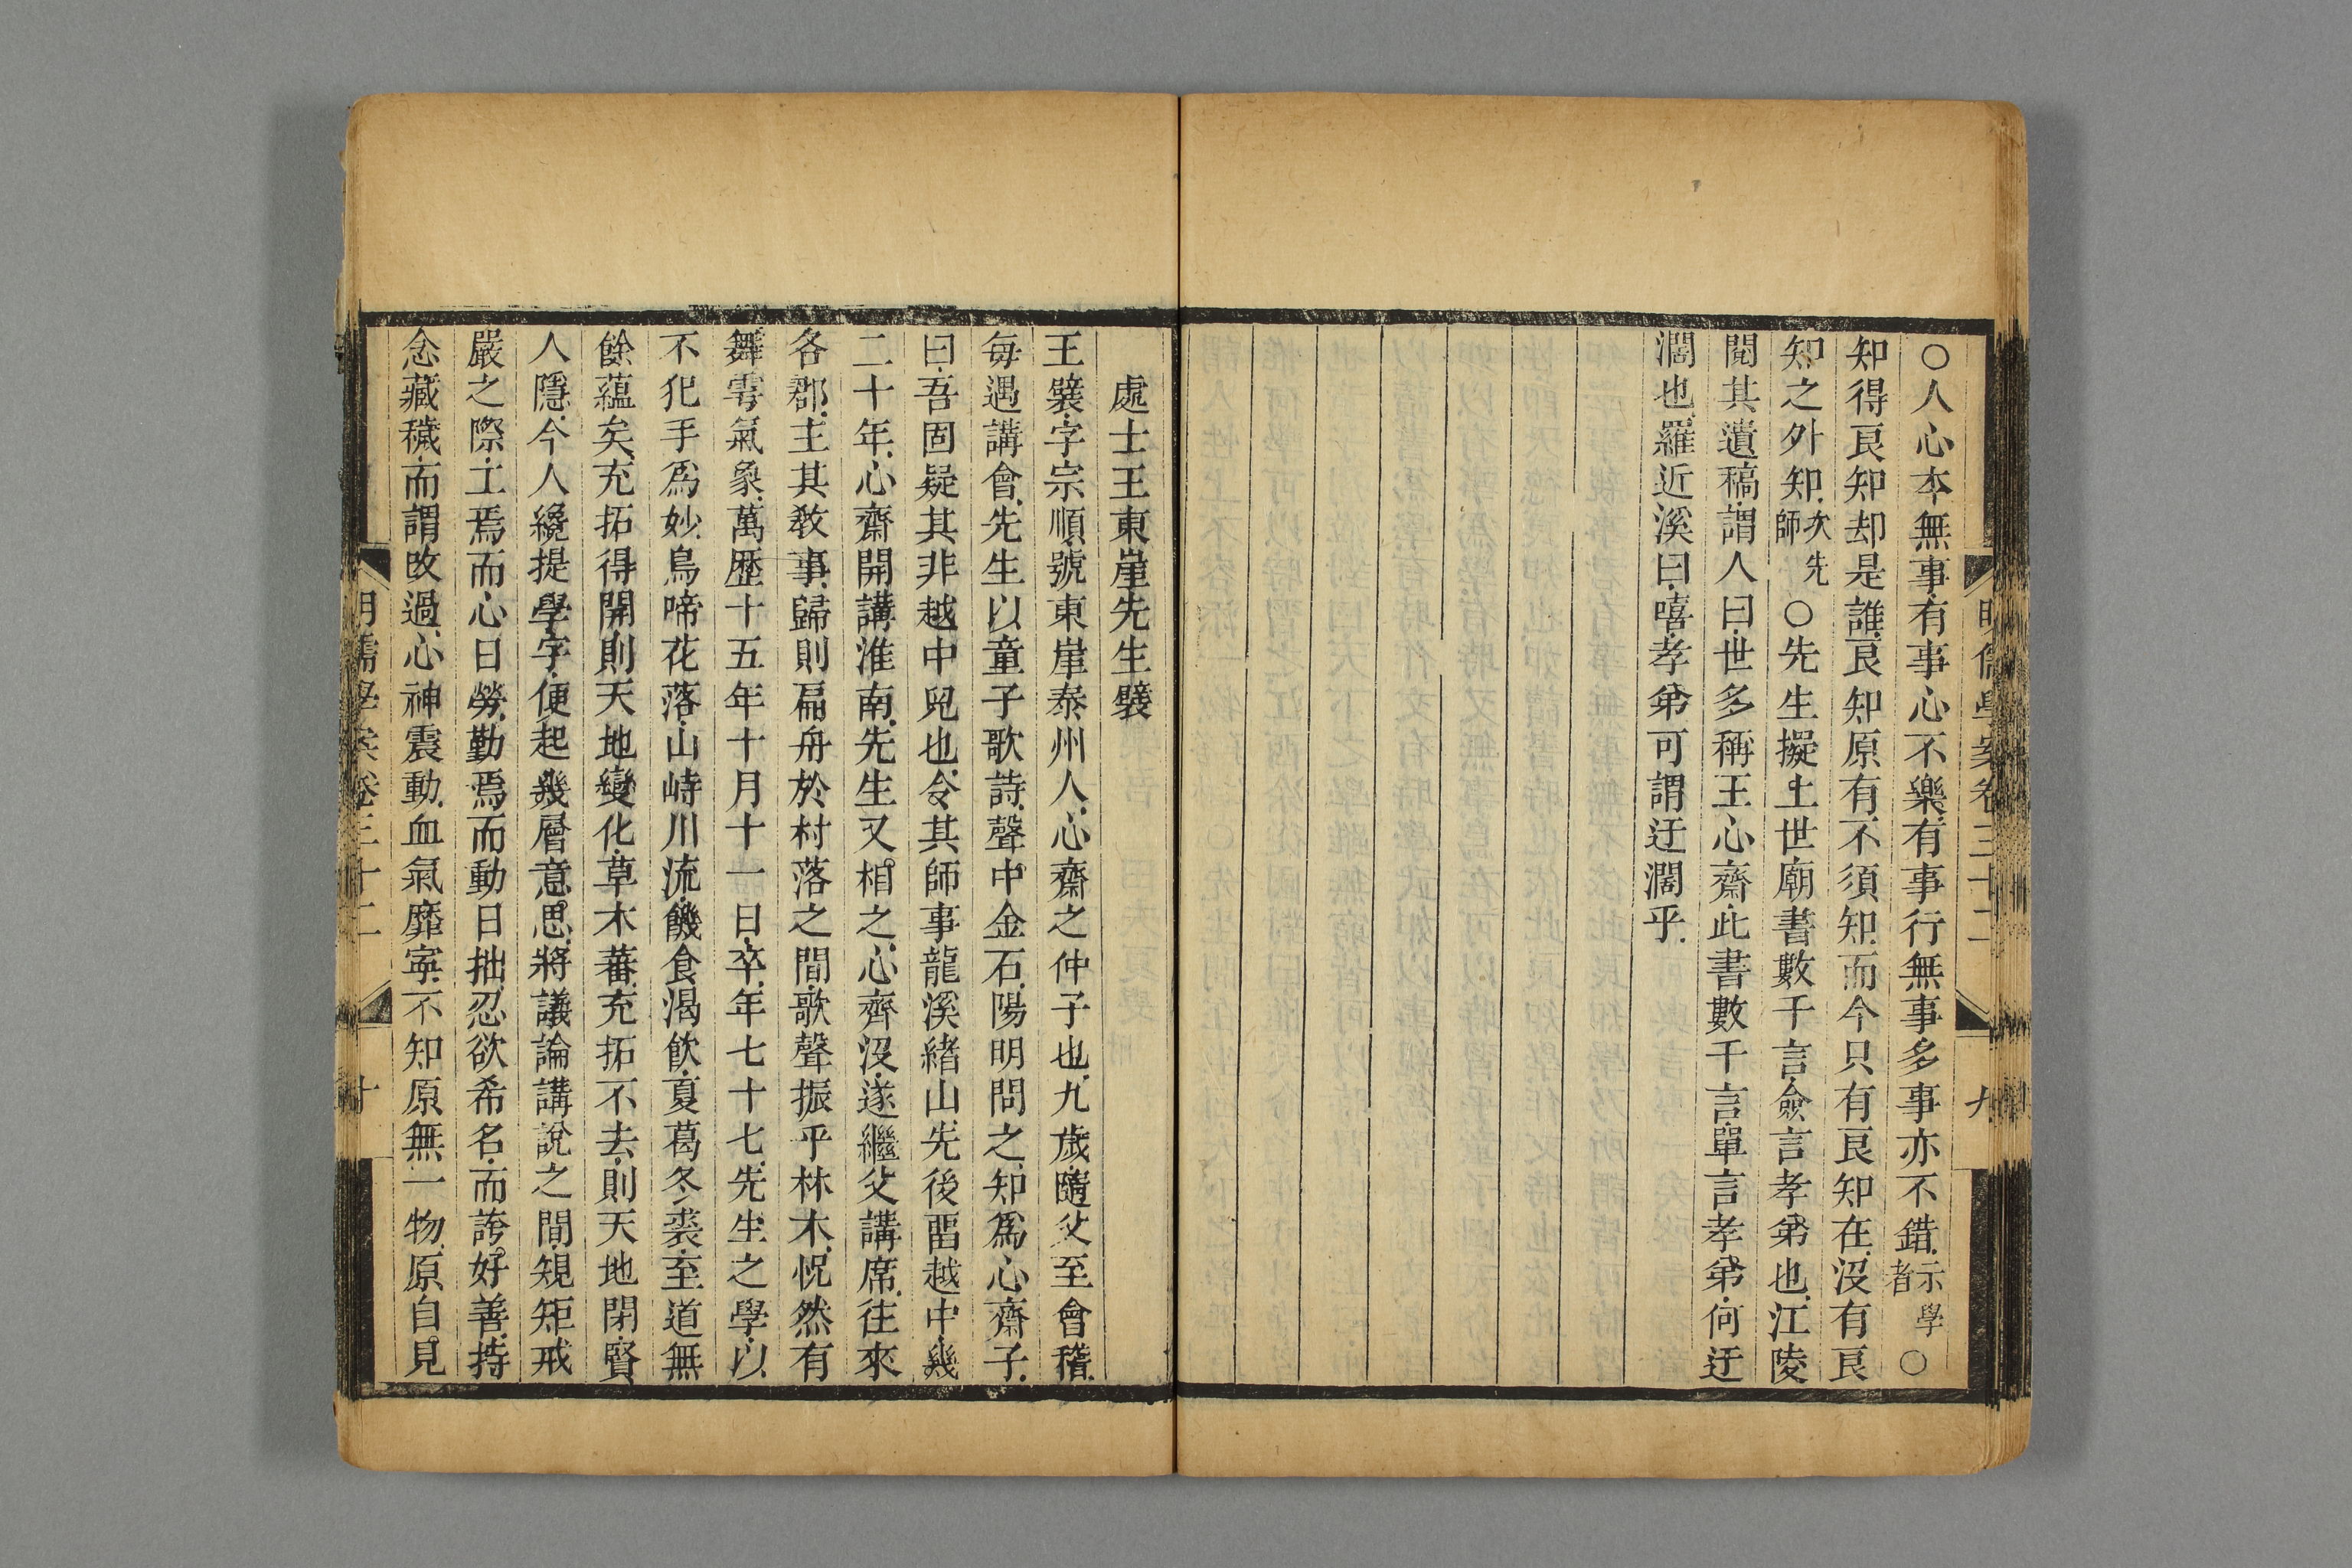 明儒學案卷三十二 九
〇人心本無事有事心不樂有事行無事多事亦不錯示學者〇
知得良知却是誰良知原有不須知而今只有良知在沒有良
知之外知次先師〇先生擬上世廟書數千言僉言孝弟也江陵
閱其遺稿謂人曰世多稱王心齋此書數千言單言孝弟何迂
濶也羅近溪曰嘻孝弟可謂迂濶乎
處士王東崖先生襞
王襞字宗順號東崖泰州人心齋之仲子也九歲隨父至會稽
每遇講會先生以童子歌詩聲中金石陽明問之知爲心齋子
曰吾固疑其非越中兒也令其師事龍溪緒山先後畱越中幾
二十年心齋開講淮南先生又相之心齊沒遂繼父講席往來
各郡主其敎事歸則扁舟於村落之間歌聲振乎林木怳然有
舞雩氣象萬歷十五年十月十一日卒年七十七先生之學以
不犯手爲妙鳥啼花落山峙川流饑食渴飮夏葛冬裘至道無
餘蘊矣充拓得開則天地變化草木蕃充拓不去則天地閉賢
人隱今人纔提學字便起幾層意思將議論講說之間規矩戒
嚴之際工焉而心日勞勤焉而動日拙忍欲希名而誇好善持
念藏穢而謂改過心神震動血氣靡寍不知原無一物原自見
明儒學案卷三十二 十